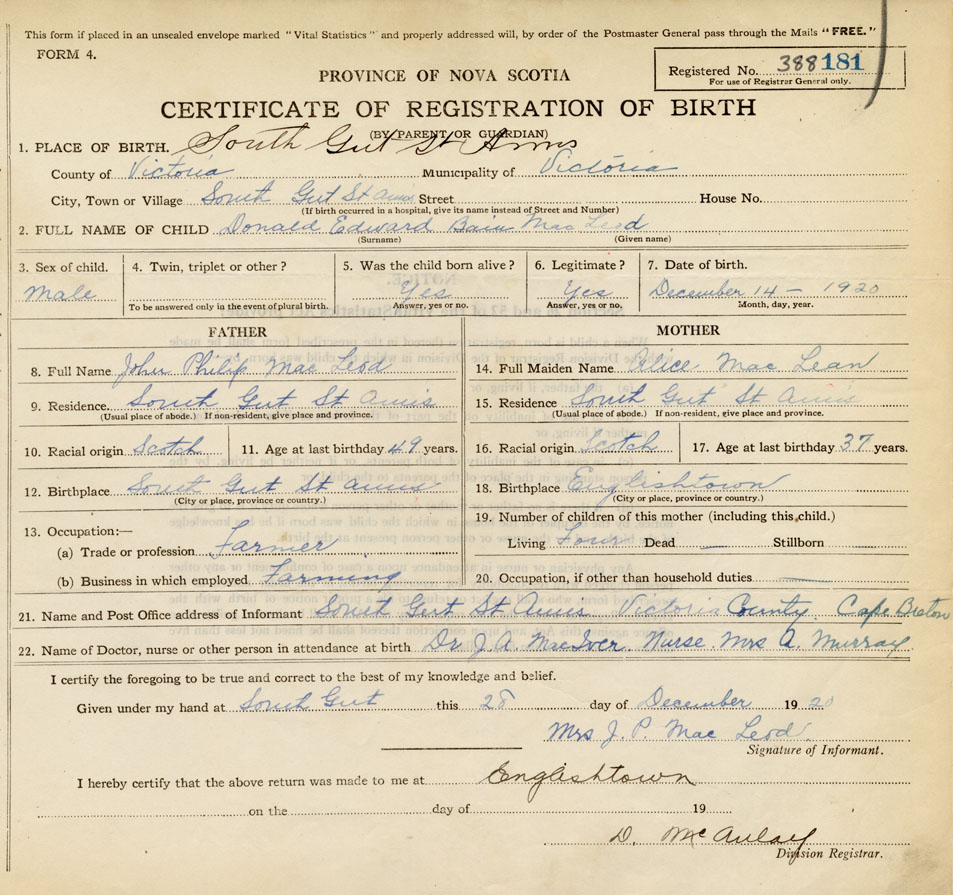 This form if placed in an unsealed envelope marked "Vital Statistics" and properly addressed will, by order of the Postmaster General pass through the Mails "FREE."
FORM 4.
Registered No. 388181
For use of Registrar General only.
PROVINCE OF NOVA SCOTIA
CERTIFICATE OF REGISTRATION OF BIRTH
(BY PARENT OR GUARDIAN)
1. PLACE OF BIRTH. South Gut St Anns
County of Victoria Municipality of Victoria
City, Town or Village South Gut St Anns Street House No.
(If birth occurred in a hospital, give its name instead of Street and Number)
2. FULL NAME OF CHILD Donald Edward Bain Mac Leod
(Surname) (Given name)
3. Sex of child. 4. Twin, triplet or other? 5. Was the child born alive? 6. Legitimate? 7. Date of birth.
Male Yes Yes December 14 - 1920
To be answered only in the event of plural birth. Answer, yes or no. Answer, yes or no. Month, day, year.
FATHER MOTHER
8. Full Name John Philip Mac Leod 14. Full Maiden Name Alice Mac Lean
9. Residence South Gut St Anns 15. Residence South Gut St Anns
(Usual place of abode.) If non-resident, give place and province. (Usual place of abode.) If non-resident, give place and province.
10. Racial origin Scotch 11. Age at last birthday 49 years. 16. Racial origin Scotch 17. Age at last birthday 37 years.
12. Birthplace South Gut St Anns 18. Birthplace Englishtown
(City or place, province or country.) (City or place, province or country.)
13. Occupation:— 19. Number of children of this mother (including this child.)
(a) Trade or profession Farmer Living Four Dead — Stillborn
(b) Business in which employed Farming 20. Occupation, if other than household duties —
21. Name and Post Office address of Informant South Gut St Anns Victoria County Cape Breton
22. Name of Doctor, nurse or other person in attendance at birth Dr J. A. MacIver Nurse Mrs A. Murray
I certify the foregoing to be true and correct to the best of my knowledge and belief.
Given under my hand at South Gut this 28 day of December 1920
Mrs J. P. Mac Leod
Signature of Informant.
I hereby certify that the above return was made to me at Englishtown
on the day of 19
D. McAulay
Division Registrar.